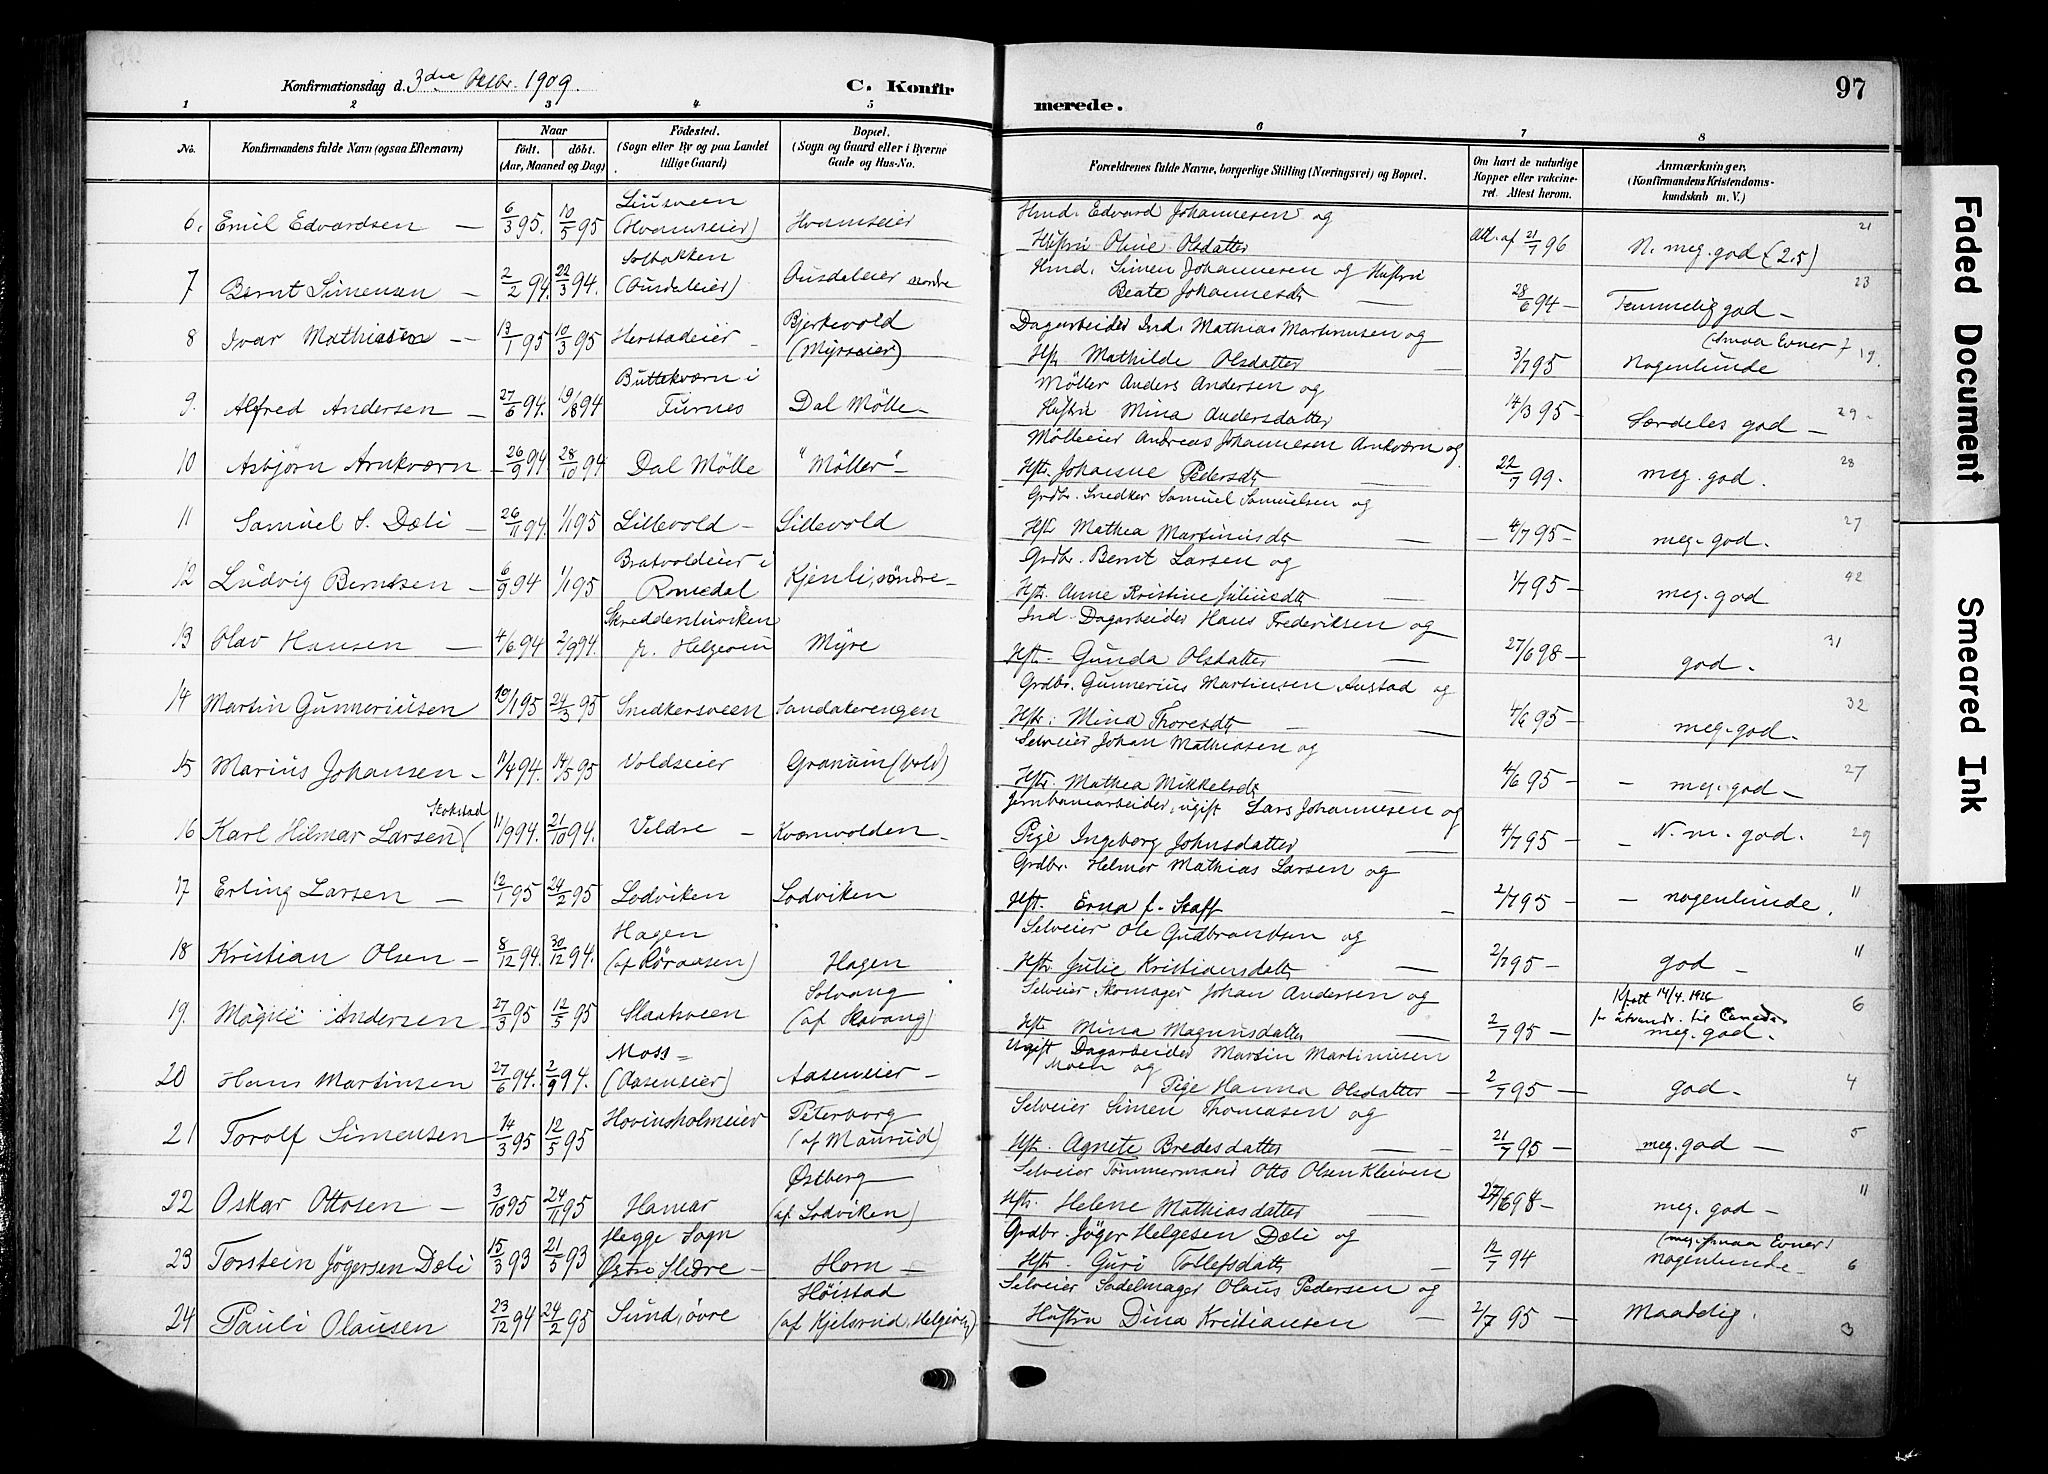 Konfirmationsdag d. 3die Oktbr. 1909.
C. Konfirmerede.
97
1 2 3 4 5 6 7 8
No.
Konfirmandens fulde Navn (ogsaa Efternavn)
Naar
født. døbt.
(Aar, Maaned og Dag)
Fødested.
(Sogn eller By og paa Landet
tillige Gaard)
Bopæl.
(Sogn og Gaard eller i Byerne
Gade og Hus-No.
Forældrenes fulde Navne, borgerlige Stilling (Næringsvei) og Bopæl.
Om havt de naturlige
Kopper eller vakcine-
ret. Attest herom.
Anmærkninger,
(Konfirmandens Kristendoms-
kundskab m. V.)
6. Emil Edvardsen — 6/3 95. 10/5 95 (Hvamseier) Hvamseier Hmd. Edvard Johannesen og
Hustru Oline Olsdatter Att. af 21/7 96 N. meg. god (2.5) 21
7 Bernt Simensen — 2/2 94. 22/3 94. Solbakken (Ousdaleier) Ousdaleier nordre Hmd. Simen Johannesen og Hustru
Beate Johannesdt — 28/6 94 — Temmelig god — 23
8 Ivar Mathiasen — 13/1 95 10/3 95 Herstadeier — Bjerkevold (Myrseier) Dagarbeider Ind. Mathias Martinusen og
Hst. Mathilde Olsdatter — 3/7 95 (smaa Evner) Nogenlunde 19.
9. Alfred Andersen — 27/6 94. 19/8 94 Buttekværn i Furnes Dal Mølle — Møller Anders Andersen og
Hustru Mina Andersdatter 14/3 95 — Særdeles god — 29
10 Asbjørn Ankværn 26/9 94. 28/10 94 Dal Mølle "Møller" — Mølleeier Andreas Johannesen Ankværn og
Hst. Johanne Pedersdt 22/7 99. meg. god. 28
11 Samuel S. Dæli — 26/11 94. 1/1 95 Lillevold — Lillevold Grdbr. Snedker Samuel Samuelsen og
Hst. Mathea Martinusdt — 4/7 95 — meg. god. 27
12 Ludvig Berntsen — 6/9 94 1/1 95 Bratvoldeier i Romedal Kjenli, søndre — Grdbr. Bernt Larsen og
Hst. Anne Kristine Juliusdt — 1/7 95 — meg. god 42
13 Olav Hansen — 4/6 94 2/9 94. Skredderstuviken p. Helgøen Myre Ind. Dagarbeider Hans Frederiksen og
Hst. Gunda Olsdatter — 27/6 98 — god. 31
14 Martin Gunneriusen 10/1 95 24/3 95 Snedkersveen Sandakerengen Grdbr. Gunnerius Martinsen Austad og
Hst. Mina Thoresdt — 4/6 95 — meg. god. 32
15 Marius Johansen — 11/4 94. 14/5 95 Voldseier Granum (Vold) Selveier Johan Mathiasen og
Hst. Mathea Mikkelsdt 4/6 95 — meg. god — 27
16 Karl Hilmar Larsen (Stokstad 11/9 94. 21/10 94. Veldre — Kværnvolden — Jernbanearbeider, ugift Lars Johannesen og
Pige Ingeborg Johnsdatter — 4/7 95 — N. m. god. 29
17 Erling Larsen — 12/1 95 24/2 95 Lodviken Lodviken Grdbr. Helmer Mathias Larsen og
Hst. Erna f. Staff — 2/7 95 — nogenlunde. 11
18 Kristian Olsen — 8/12 94. 30/12 94. Hagen (af Røraasen) Hagen Selveier Ole Gudbrandsen og
Hst. Julie Kristiansdatt — 2/7 95 — god — 11
19. Magne Andersen 27/3 95 12/5 95 Slaatsveen Solvang (af Skavang) Selveier Skomager Johan Andersen og
Hst. Mina Magnusdatter — 2/7 95 — Kfatt 14/4. 1926 for utvandr. til Canada. meg. god. 6
20 Hans Martinsen 27/6 94. 2/9 94. Moss= (Aaseneier) Aaseneier — Ugift Dagarbeider Martin Martiniusen
Moen og Pige Hanna Olsdatter — 2/7 95 — god. 4
21 Torolf Simensen 14/3 95 12/5 95 Hovinsholmeier Peterborg (af Maurud) Selveier Simen Thomasen og
Hst. Agnete Bredesdatter — 21/7 95 — meg. god — 5
22 Oskar Ottosen — 3/10 95 24/11 95 Hamar Østberg (af Lodviken) Selveier Tømmermand Otto Olsen Kleiven
Hst. Helene Mathiasdatter — 27/6 98 — meg. god — 11
23 Torstein Jøgersen Dæli 15/3 93 21/5 93 Hegge Sogn Østre Slidre — Horn — Grdbr. Jøger Helgesen Dæli og
Hst. Guri Tollefsdatt — 12/7 94 (meg. smaa Evner) nogenlunde — 6
24 Pauli Olausen 23/12 94 24/2 95 Sund, øvre Høistad (af Kjelsrud, Helgøen) Selveier Sadelmager Olaus Pedersen og
Hustru Dina Kristiansen — 2/7 95 — Maadelig. 3
Faded Document
Smeared Ink